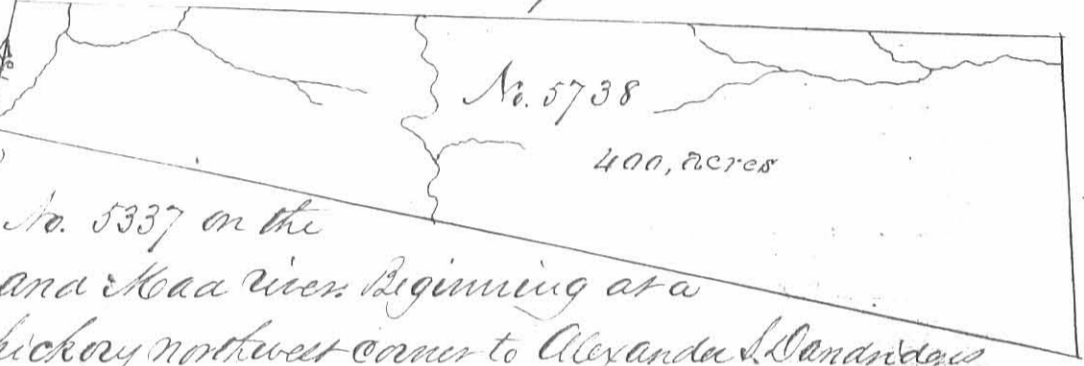 No. 5738
400, acres
No. 5337 on the
and Mad river. Beginning at a
hickory northwest corner to Alexander S. Dandridges